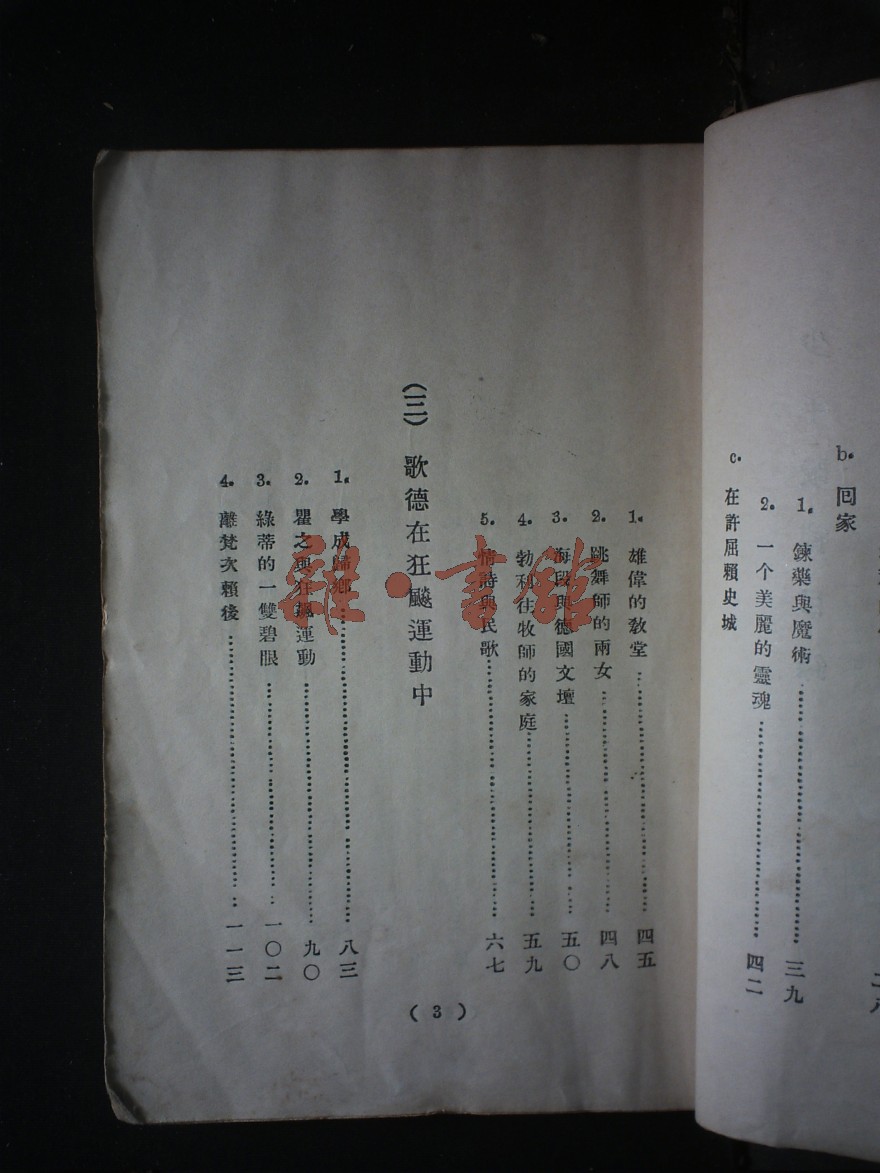 b. 回家
1. 鍊藥與魔術……三九
2. 一个美麗的靈魂……四二
c. 在許屈賴史城
1. 雄偉的教堂……四五
2. 跳舞師的兩女……四八
3. 海段與德國文壇……五〇
4. 勃利往牧師的家庭……五九
5. 情詩與民歌……六七
(三) 歌德在狂飈運動中
1. 學成歸鄉……八三
2. 瞿之與狂飈運動……九〇
3. 綠蒂的一雙碧眼……一〇二
4. 離梵次賴後……一一三
(3)
雜·書館